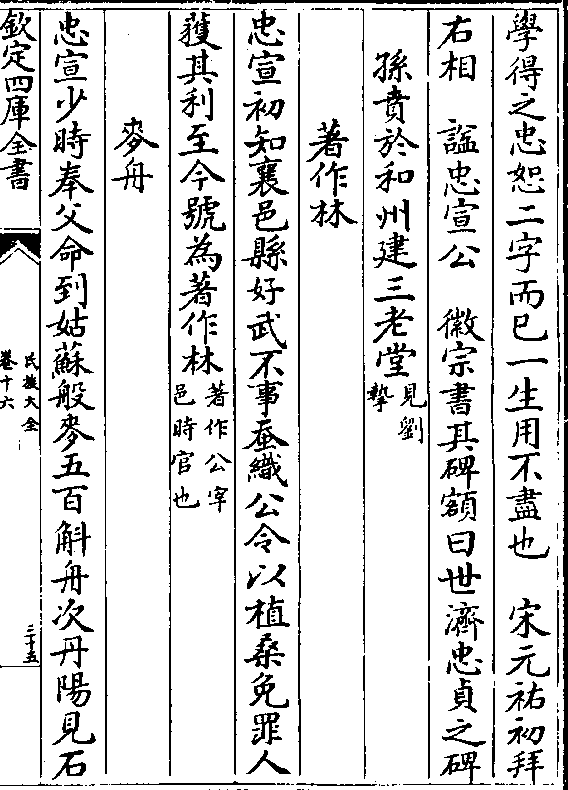 學得之忠恕二字而已一生用不盡也　宋元祐初拜
右相　諡忠宣公　徽宗書其碑額曰世濟忠貞之碑
孫賁於和州建三老堂見劉摯
著作林
忠宣初知襄邑縣好武不事蚕織公令以植桑免罪人
蒦其利至今號為著作林著作公宰邑時官也
麥舟
忠宣少時奉父命到姑蘇般麥五百斛舟次丹陽見石
欽定四庫全書
氏族大全
卷十六
三十五